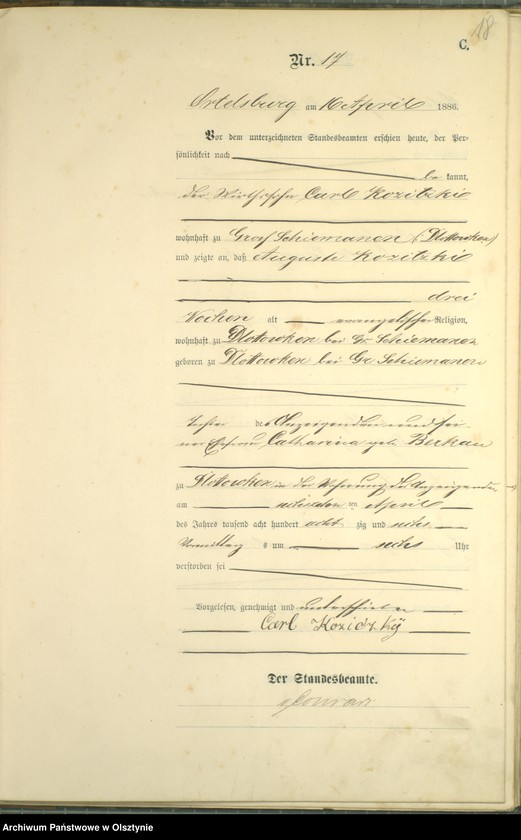 18
C.
Nr. 17
Ortelsburg am 10 April 1886.
Vor dem unterzeichneten Standesbeamten erschien heute, der Per-
sönlichkeit nach
be kannt,
der Wirthssohn Carl Kozitzki
wohnhaft zu Groß Schiemanen (Plottowken)
und zeigte an, daß Auguste Kozitzki
drei
Wochen alt evangelischer Religion,
wohnhaft zu Plottowken bei Gr. Schiemanen
geboren zu Plottowken bei Gr. Schiemanen
Tochter des Anzeigenden und sei-
ner Ehefrau Catharina geb. Berkau
zu Plottowken in der Wohnung des Anzeigenden
am ten April
des Jahres tausend acht hundert acht zig und sechs
Vormittag s um sechs Uhr
verstorben sei
Vorgelesen, genehmigt und unterschrieben
Carl Koziczky
Der Standesbeamte.
Archiwum Państwowe w Olsztynie